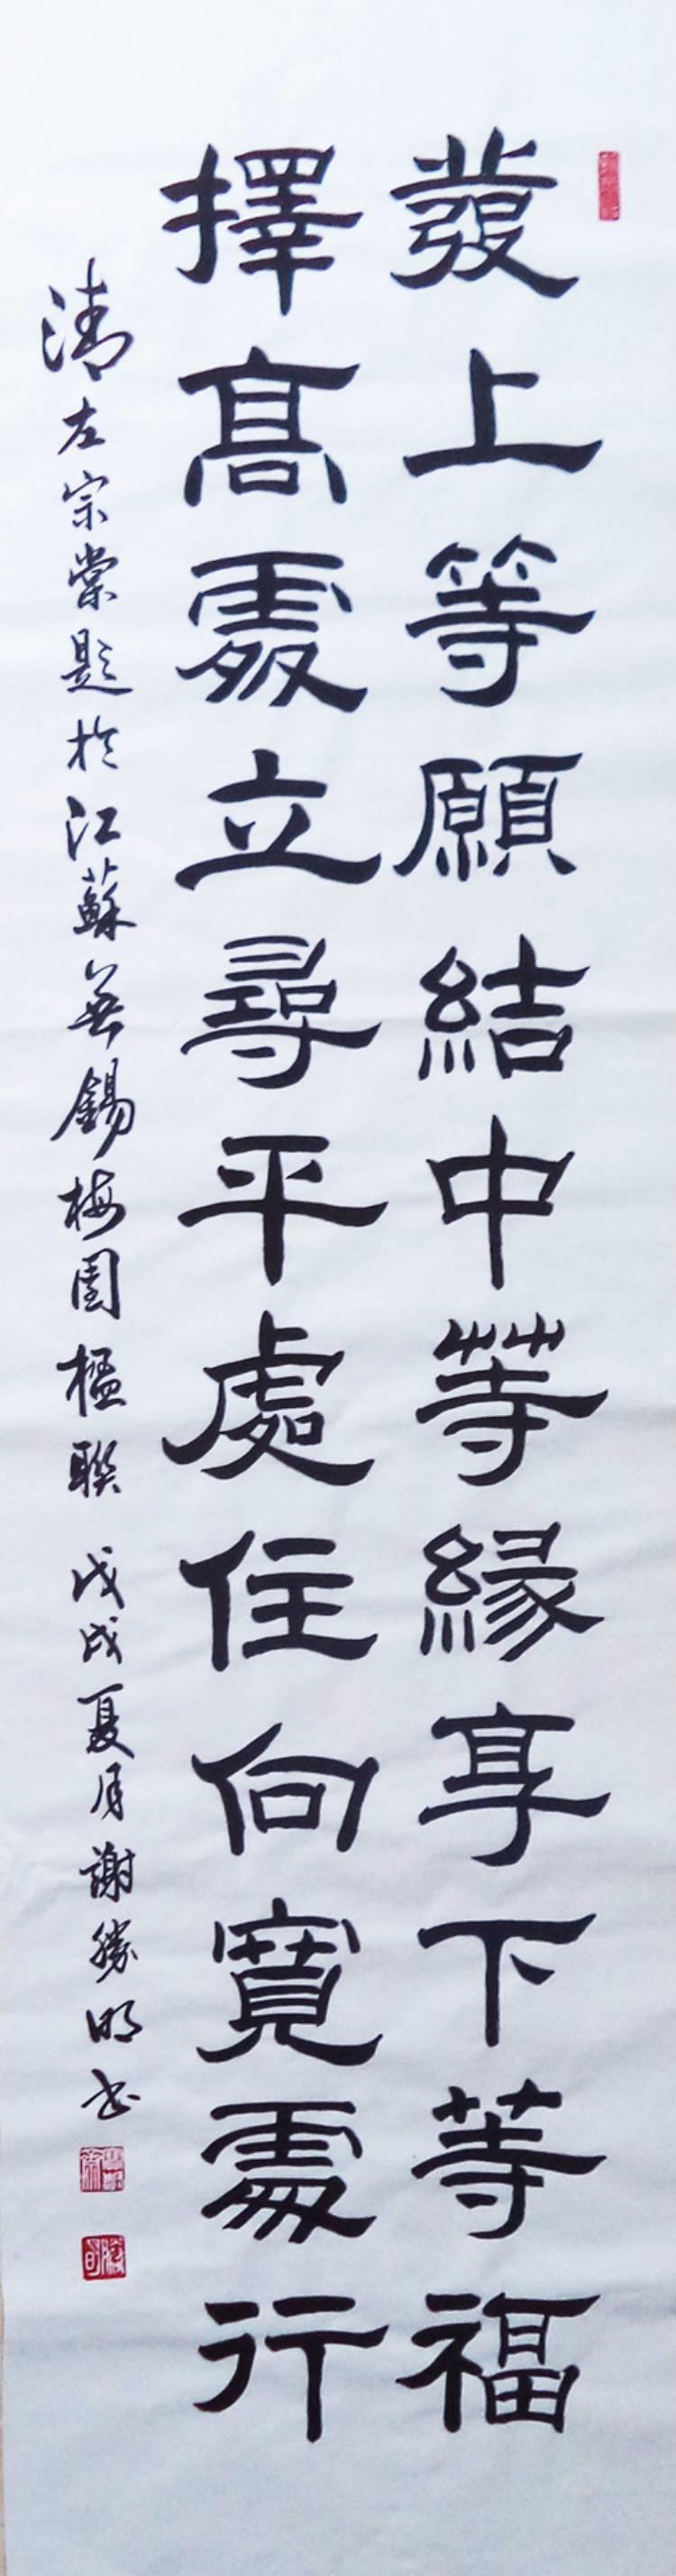 發上等願結中等緣享下等福
擇高處立尋平處住向寬處行
清左宗棠題於江蘇無錫梅園楹聯 戊戌夏月謝勝明书